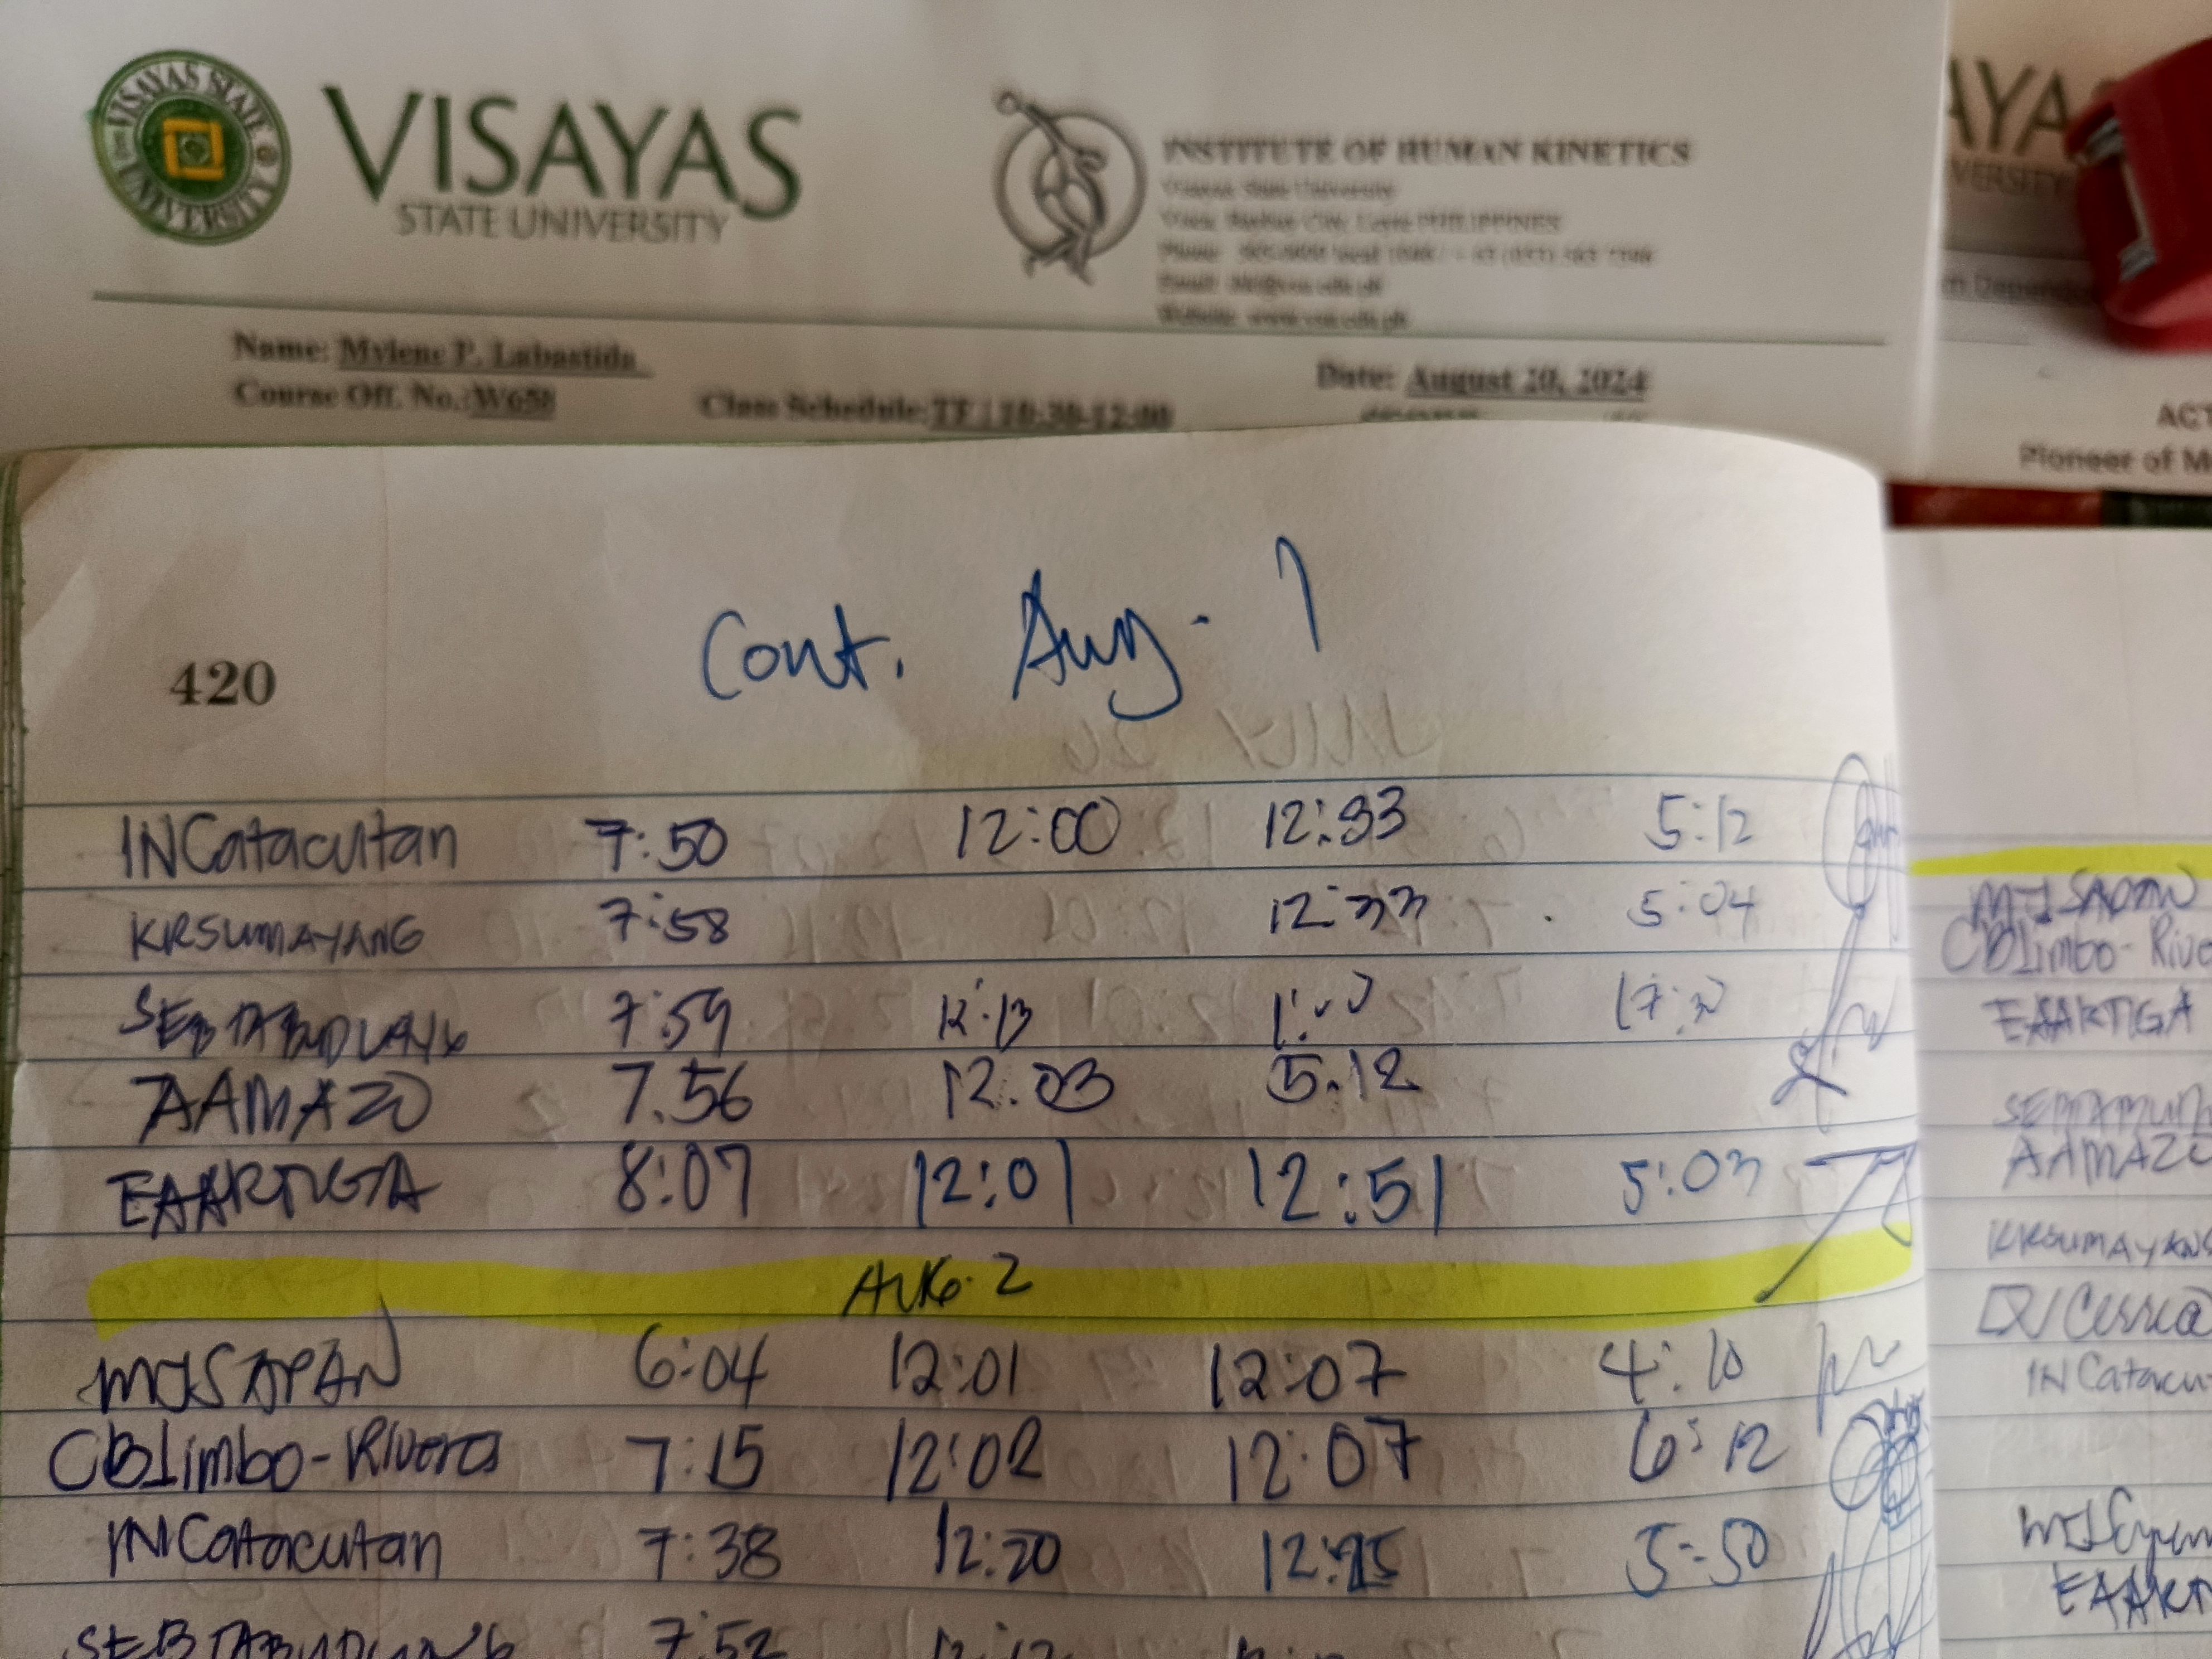 VISAYAS
STATE UNIVERSITY
VISAYAS STATE UNIVERSITY
INSTITUTE OF HUMAN KINETICS
Visayas State University
Visca, Baybay City, Leyte PHILIPPINES
Name: Mylene P. Labastida
Date: August 20, 2024
Course Off. No.: W658
Class Schedule: TF | 10:30-12:00
AYA
VERSITY
ACT
Pioneer of M
420
Cont. Aug. 1
INCatacutan 7:50 12:00 12:33 5:12
KRSUMAYANG 7:58 12:33 5:04
7:59 12:13
AAMAZO 7.56 12.03 5.12
EAARTIGA 8:07 12:01 12:51 5:03
AUG. 2
MJSAPAN 6:04 12:01 12:07 4:10
CBLimbo-Rivera 7:15 12:02 12:07 6:12
INCatacutan 7:38 12:20 5:50
7:52
MJSAPAN
CBLimbo-Rive
EAARTIGA
AAMAZO
KRSUMAYANG
INCatacu
EAART